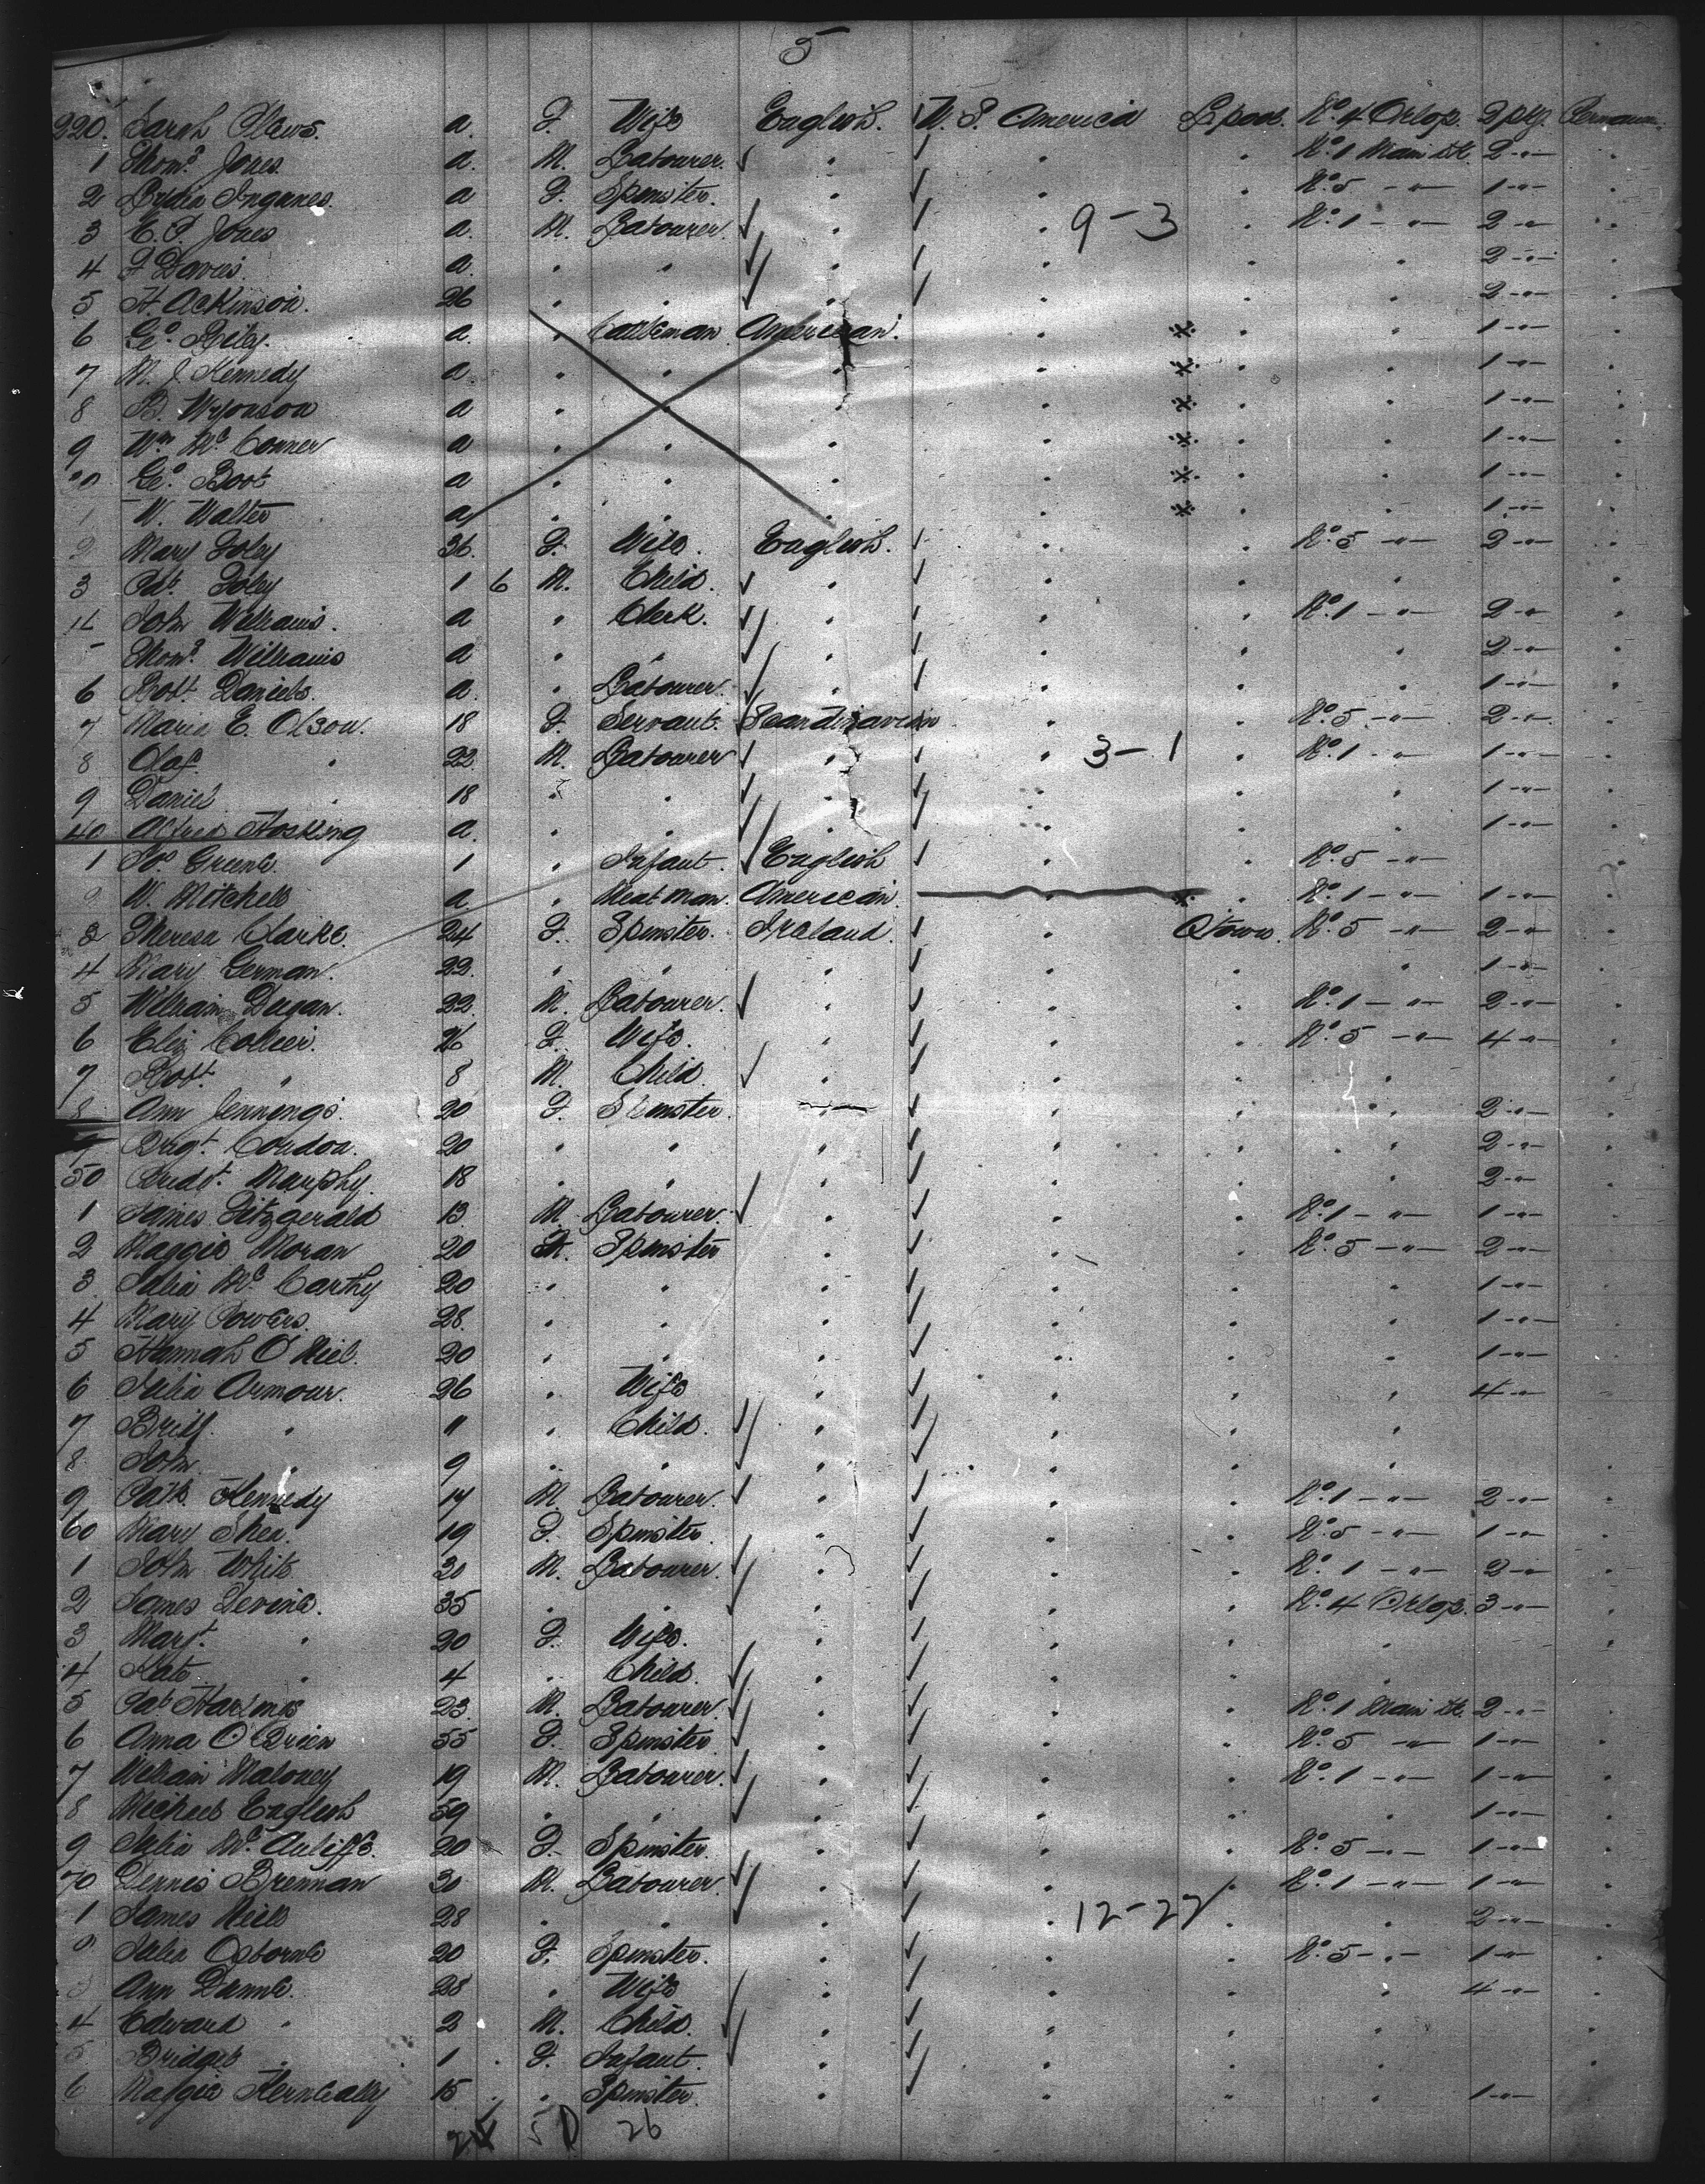 5
220. Sarah a. F. Wife English. U. S. America Lpool. No. 4 Orlop. 2 pkg.
1 Thoms. Jones. a. M. Labourer. ✓ " ✓ " " No. 1 Main dk. 2 - " -
2 Lydia a F. Spinster. " ✓ " " No. 5 - " - 1 - " -
3 E. P. Jones a. M. Labourer. ✓ " ✓ " 9-3 " No. 1 - " - 2 - " -
4 F. Davies. a. " " ✓ " ✓ " " " 2 - " -
5 H. Ackinson. 26 " " ✓ " ✓ " " " 2 - " -
6 Geo. Rily. a. " Cattleman American. " * " " 1 - " -
7 M. J. Kennedy a. " " " " * " " 1 - " -
8 B. a " " " " * " " 1 - " -
9 Wm. Mc. Conner a " " " " * " " 1 - " -
30 Geo. Boot a " " " " * " " 1 - " -
1 W. Walter a " " " " * " " 1 - " -
2 Mary Foley 36. F. Wife. English. ✓ " " No. 5 - " - 2 - " -
3 Pat. Foley 1 6 M. Child. ✓ " ✓ " " "
4 John Williams. a " Clerk. ✓ " ✓ " " No. 1 - " - 2 - " -
5 Thoms. Williams a " " ✓ " ✓ " " " 2 - " -
6 Robt. Daniels. a. " Labourer. ✓ " ✓ " " " 1 - " -
7 Maria E. Olson. 18 F. Servant. ✓ Scandinavian " " No. 5 - " - 2 - " -
8 Olaf " 22. M. Labourer ✓ " ✓ " 3-1 " No. 1 - " - 1 - " -
9 Daniel " 18 " " ✓ " ✓ " " " 1 - " -
40 Alfred Hosking a. " " ✓ " ✓ " " " 1 - " -
1 Greene 1 " Infant. ✓ English ✓ " " No. 5 - " -
2 W. Mitchell a " Meat Man. American. " * " No. 1 - " - 1 - " -
3 Theresa Clarke. 24 F. Spinster. Ireland. ✓ " Qtown. No. 5 - " - 2 - " -
4 Mary German. 22. " " " ✓ " " " 1 - " -
5 William Dugan. 22. M. Labourer. ✓ " ✓ " " No. 1 - " - 2 - " -
6 Eliz Collier. 26 F. Wife. " ✓ " " No. 5 - " - 4 - " -
7 Robt. " 8 M. Child. ✓ " ✓ " " "
8 Ann Jennings. 20 F. Spinster. " ✓ " " " 2 - " -
9 Brigt. Condon. 20 " " " ✓ " " " 2 - " -
50 Bridt. Murphy. 18 " " " ✓ " " " 2 - " -
1 James Fitzgerald 13 M. Labourer. ✓ " ✓ " " No. 1 - " - 1 - " -
2 Maggie Moran 20 Spinster " ✓ " " No. 5 - " - 2 - " -
3 Julia Mc. Carthy 20 " " " ✓ " " " 1 - " -
4 Mary Powers. 28. " " " ✓ " " " 1 - " -
5 Hannah O'Niel. 20 " " " ✓ " " " 1 - " -
6 Julia Armour. 26 " Wife " ✓ " " " 4 - " -
7 " 11 " Child. ✓ " ✓ " " "
8 John " 9 " " ✓ " ✓ " " "
9 Patk. Kennedy 17 M. Labourer. ✓ " ✓ " " No. 1 - " - 2 - " -
60 Mary Shea. 19 F. Spinster. " ✓ " " No. 5 - " - 1 - " -
1 John White 30 M. Labourer. ✓ " ✓ " " No. 1 - " - 2 - " -
2 James Devine. 35 " " ✓ " ✓ " " No. 4 Orlop. 3 - " -
3 Margt. " 20 F. Wife. " ✓ " " "
4 Kate " 4 " Child. ✓ " ✓ " " "
5 Pat 23. M. Labourer. ✓ " ✓ " " No. 1 Main dk. 2 - " -
6 Anna O'Brien 55 F. Spinster. ✓ " ✓ " " No. 5 - " - 1 - " -
7 William Maloney 19 M. Labourer. ✓ " ✓ " " No. 1 - " - 1 - " -
8 Michael English 59 " " ✓ " ✓ " " " 1 - " -
9 Julia Mc. Auliffe. 20 F. Spinster. " ✓ " " No. 5 - " - 1 - " -
70 Dennis Brennan 30 M. Labourer. ✓ " ✓ " " No. 1 - " - 1 - " -
1 James Neill 28 " " ✓ " ✓ " 12-22 " " 2 - " -
2 Julia Osborne 20 F. Spinster. " ✓ " " No. 5 - " - 1 - " -
3 Ann Dunne. 28 " Wife " ✓ " " " 4 - " -
4 Edward " 2 M. Child. ✓ " ✓ " " "
5 Bridget " 1 F. Infant. ✓ " ✓ " " "
6 Maggie 15 " Spinster. " ✓ " " " 1 - " -
26